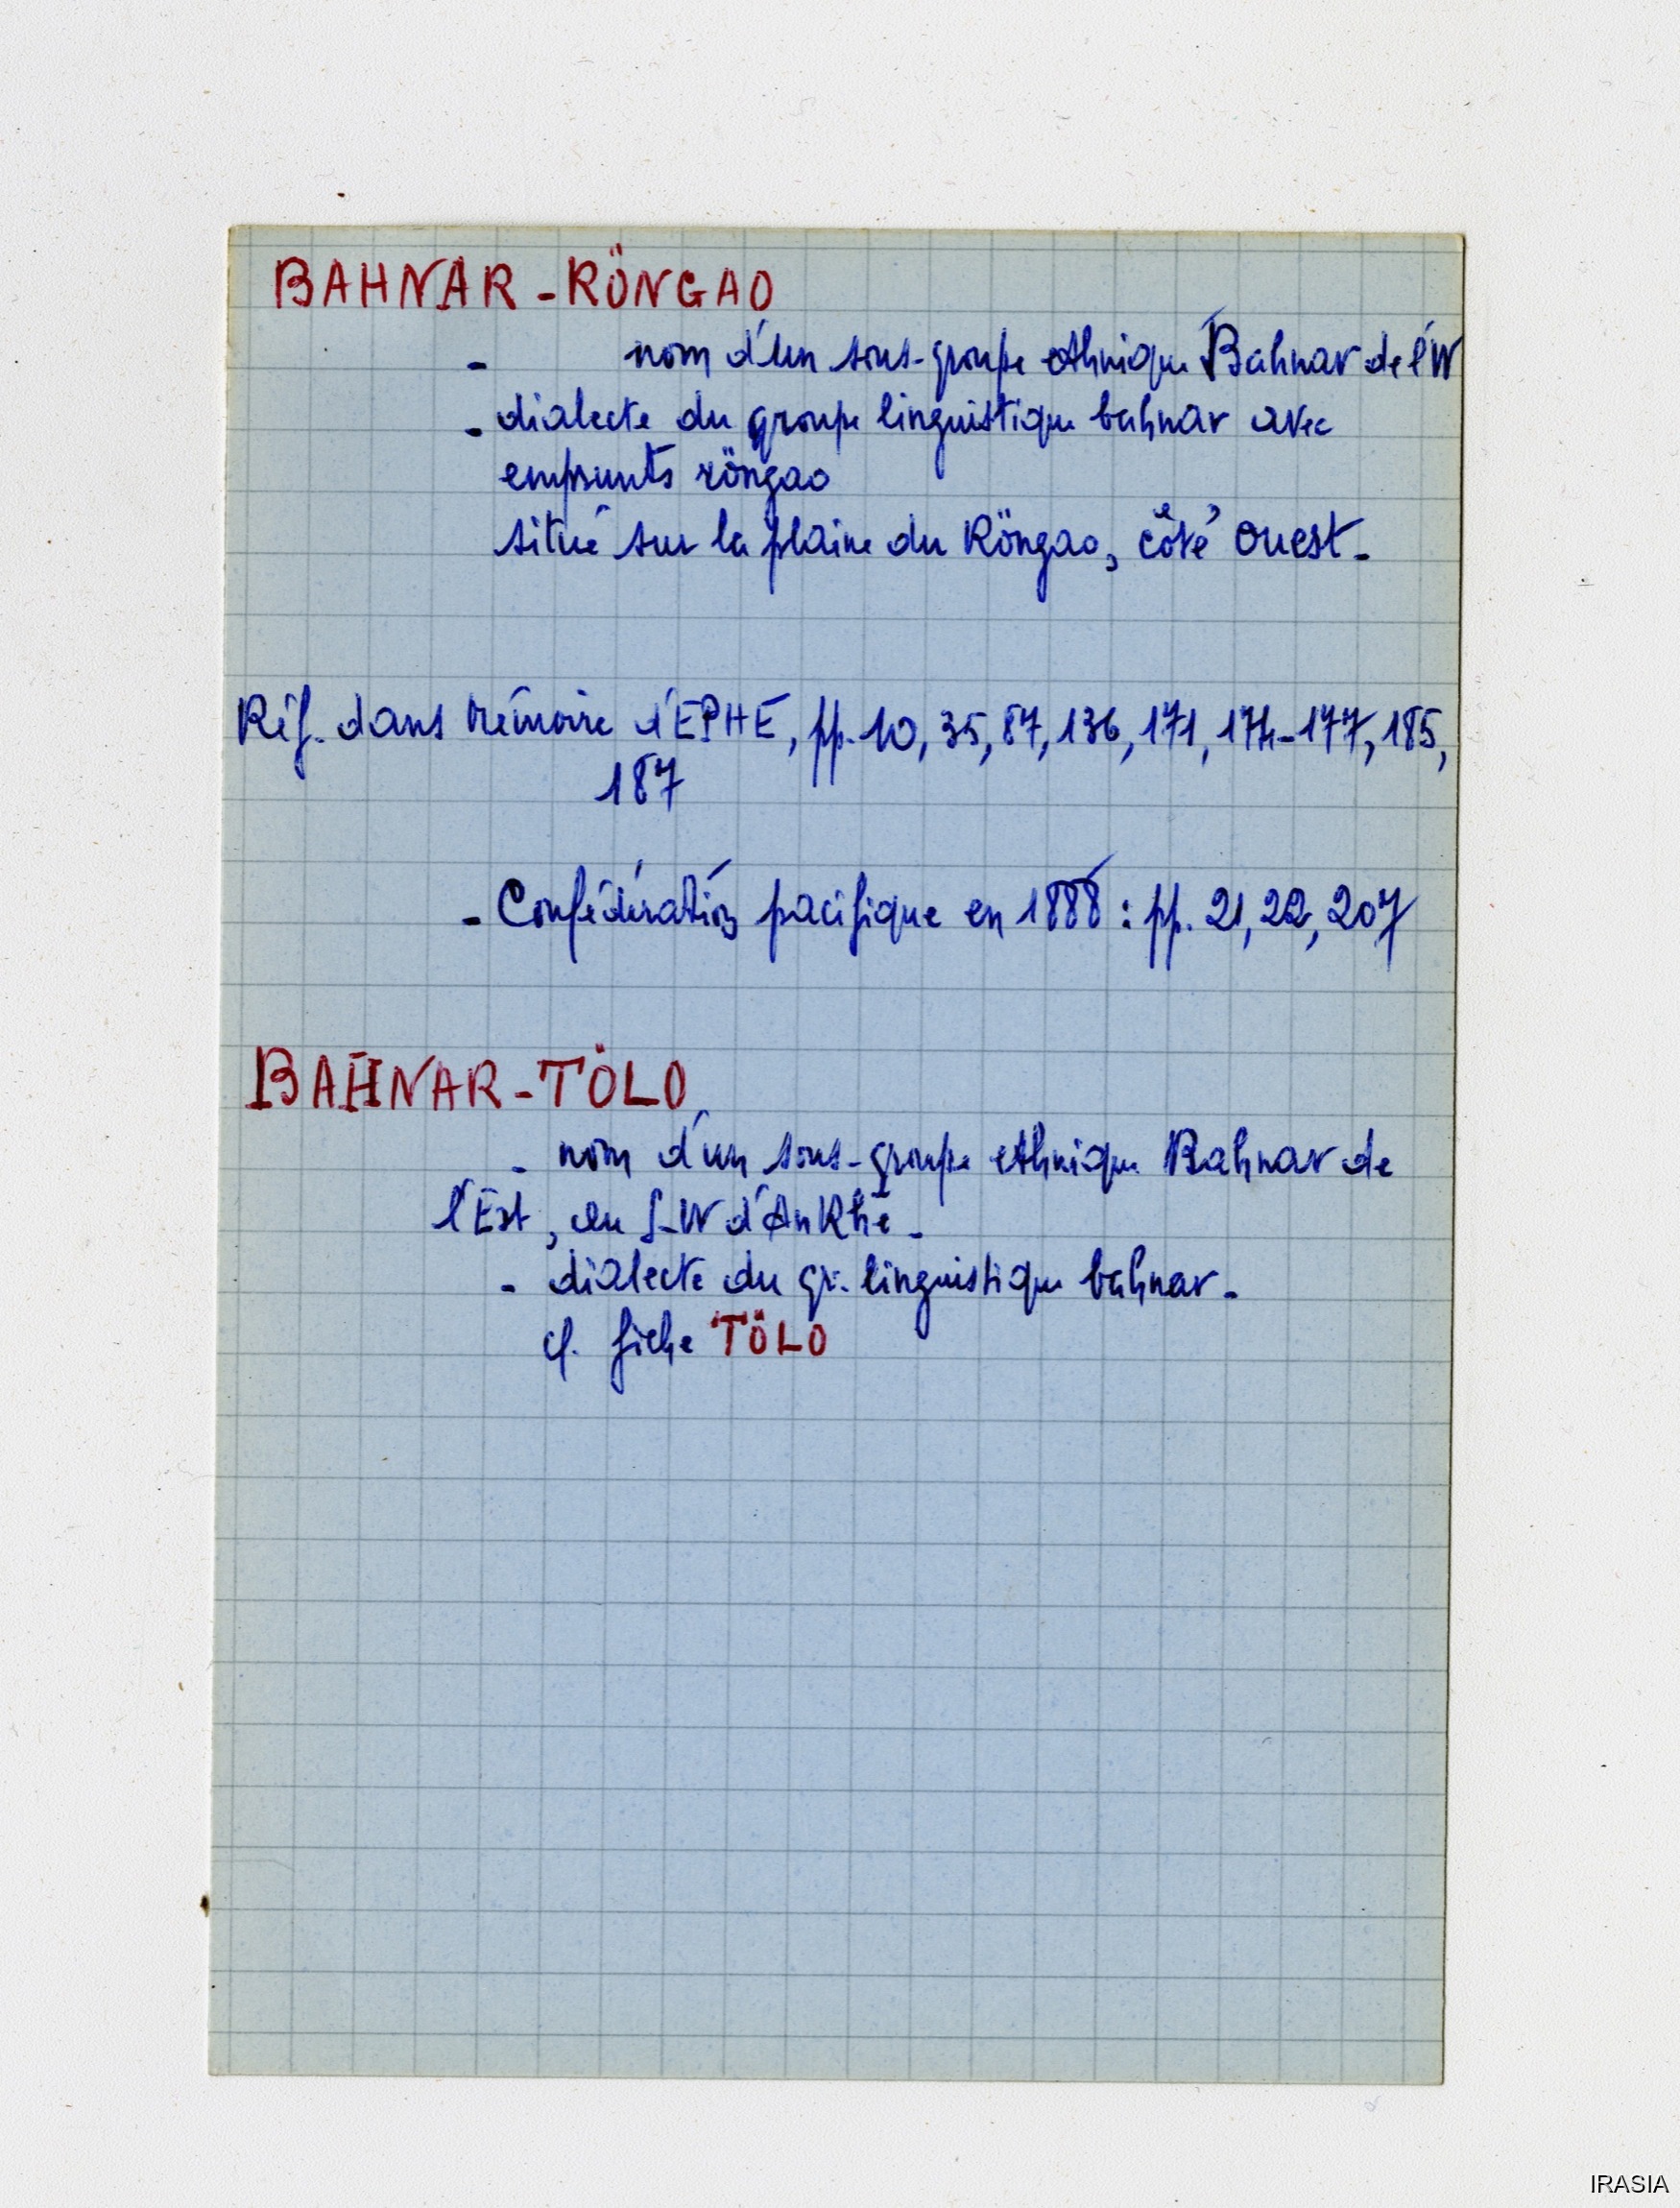 BAHNAR-RÖNGAO
- nom d'un sous-groupe ethnique Bahnar de l'W
- dialecte du groupe linguistique bahnar avec
emprunts röngao
situé sur la plaine du Röngao, côté ouest.
Réf. dans mémoire d'EPHE, pp. 10, 35, 87, 136, 171, 174-177, 185,
187
- Confédération pacifique en 1888 : pp. 21, 22, 207
BAHNAR-TÖLO
- nom d'un sous-groupe ethnique Bahnar de
l'Est, au S-W d'An Khê.
- dialecte du gr. linguistique bahnar.
cf. fiche TÖLO
IRASIA